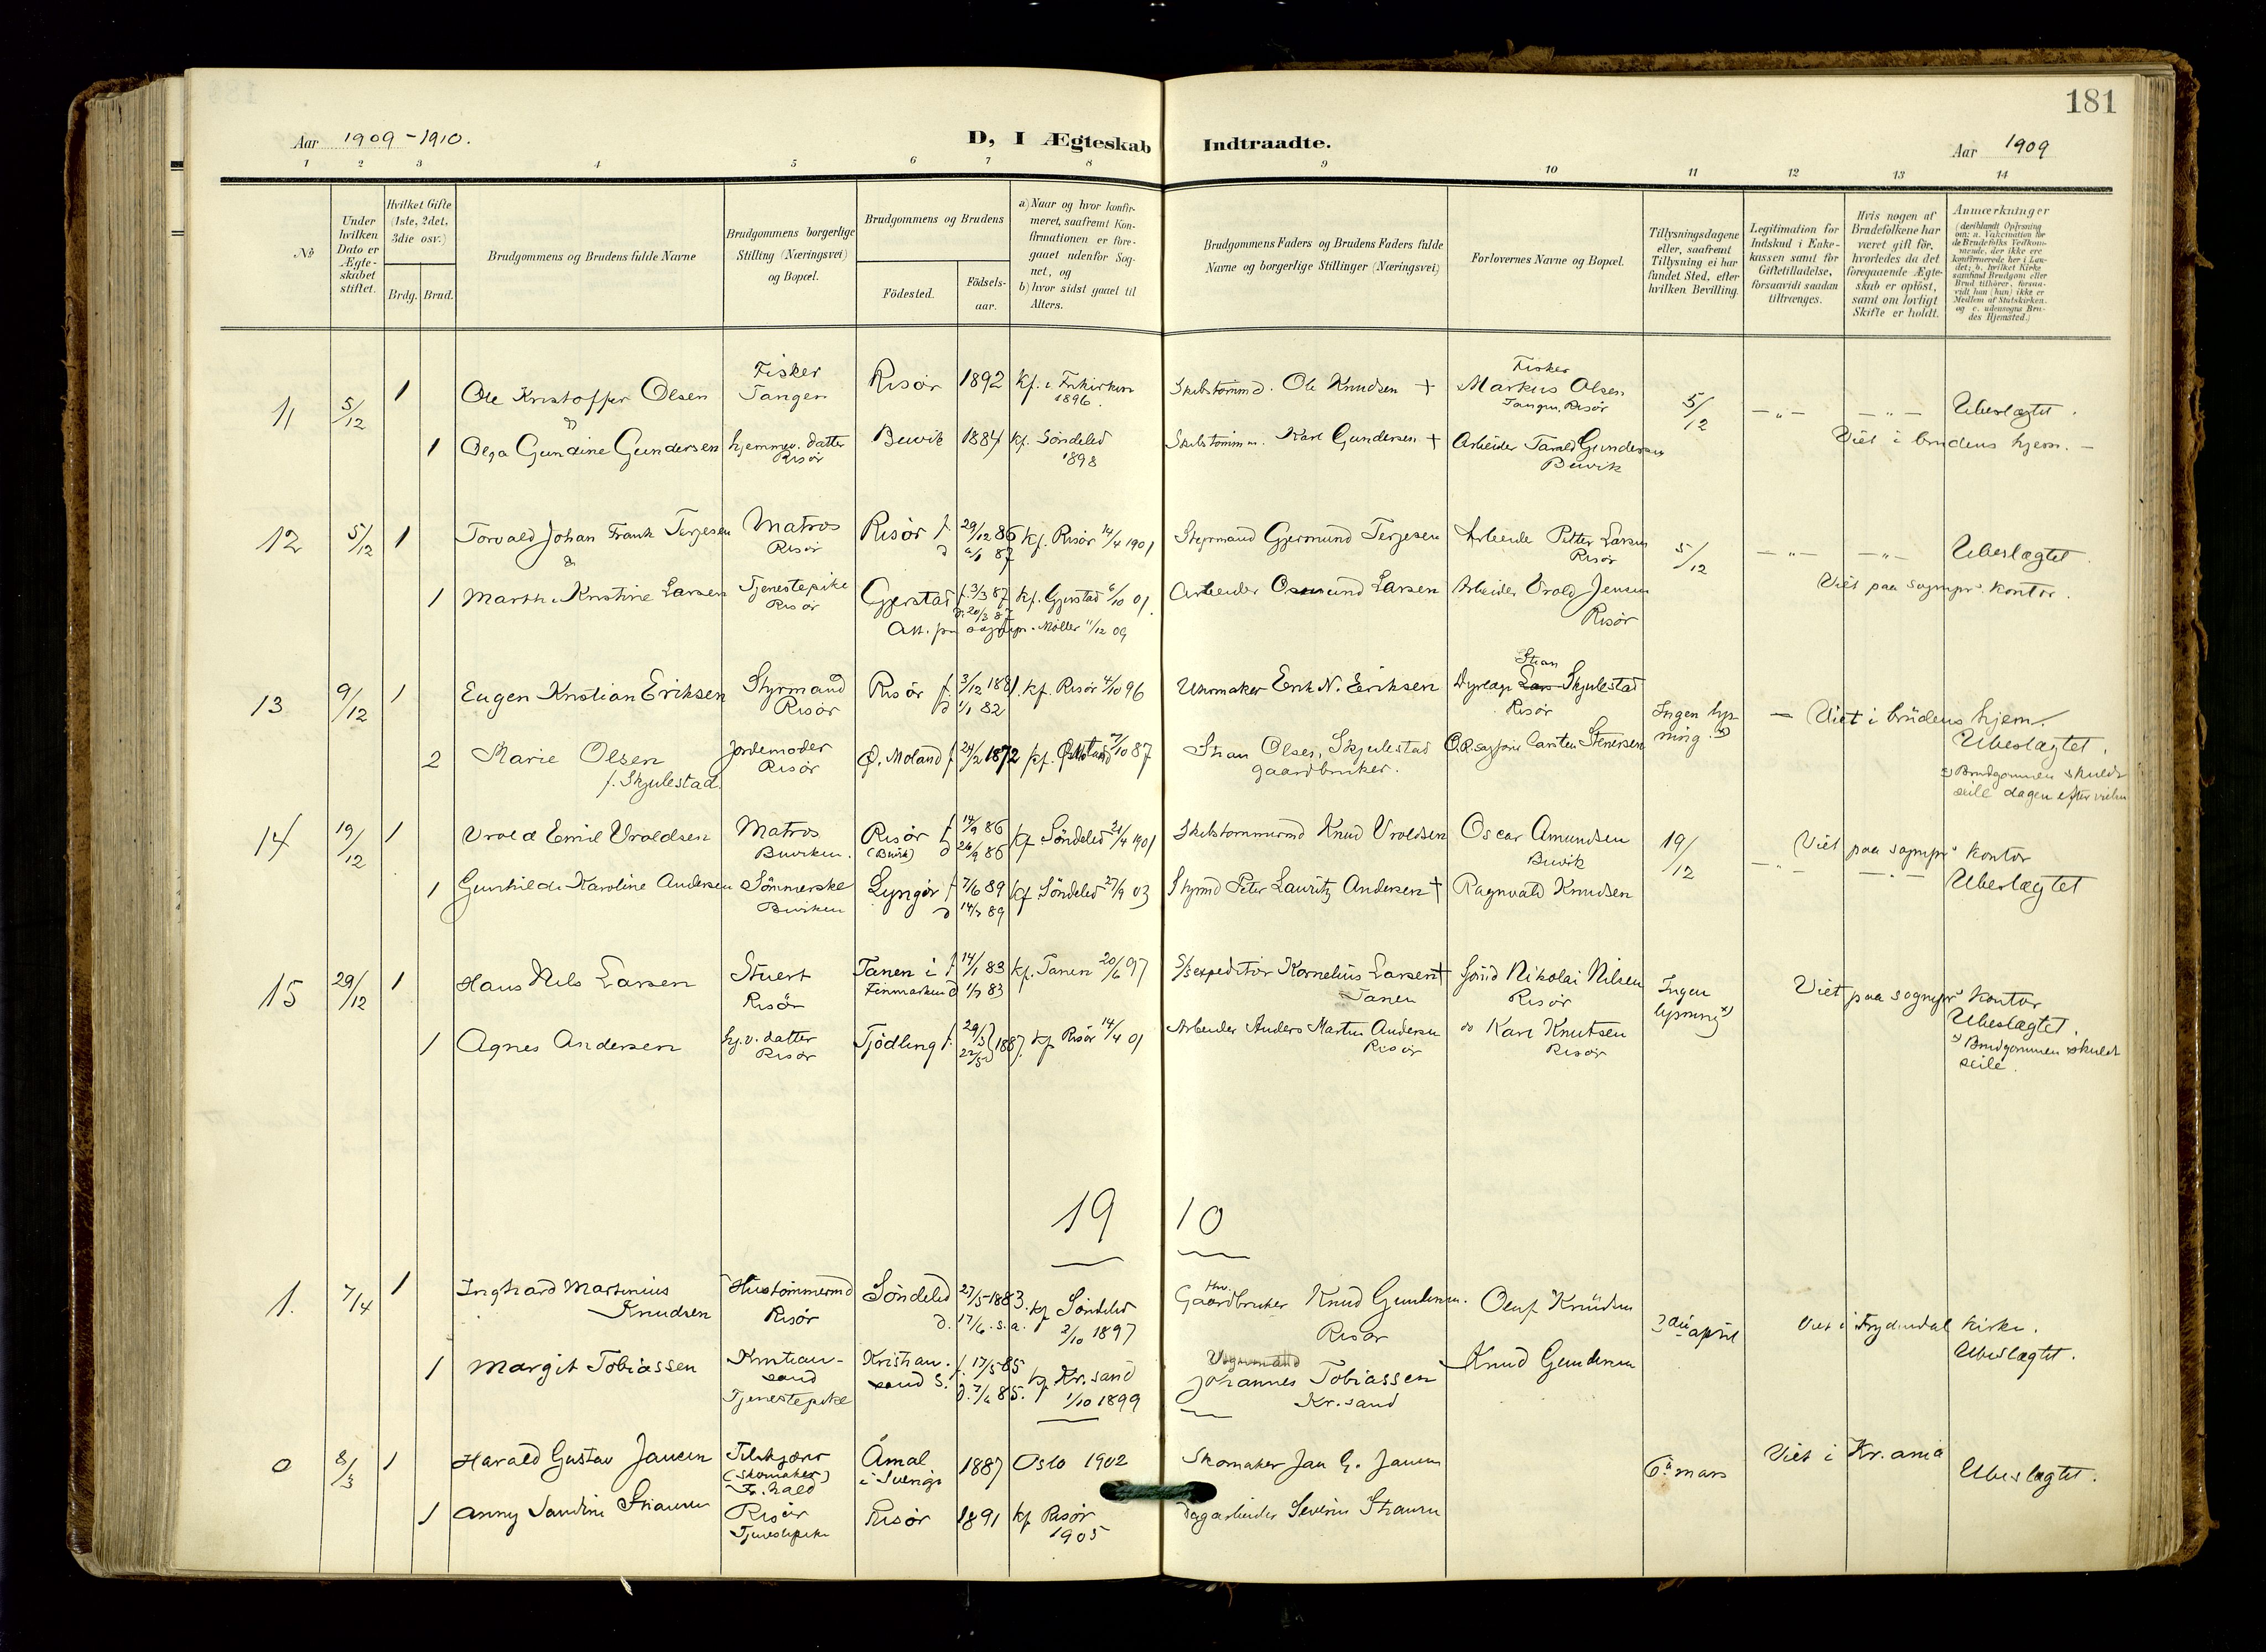 181
Aar 1909-1910.
D, I Ægteskab Indtraadte.
Aar 1909
1 2 3 4 5 6 7 8 9 10 11 12 13 14
№
Under hvilken Dato er Ægteskabet stiftet.
Hvilket Gifte (1ste, 2det, 3die osv.)
Brdg. Brud.
Brudgommens og Brudens fulde Navne
Brudgommens borgerlige Stilling (Næringsvei) og Bopæl.
Brudgommens og Brudens
Fødested.
Fødsels-aar.
a) Naar og hvor konfirmeret, saafremt Konfirmationen er foregaaet udenfor Sognet, og
b) hvor sidst gaaet til Alters.
Brudgommens Faders og Brudens Faders fulde Navne og borgerlige Stillinger (Næringsvei)
Forlovernes Navne og Bopæl.
Tillysningsdagene eller, saafremt Tillysning ei har fundet Sted, efter hvilken Bevilling.
Legitimation for Indskud i Enkekassen samt for Giftetilladelse, forsaavidt saadan tiltrænges.
Hvis nogen af Brudefolkene har været gift før, hvorledes da det foregaaende Ægteskab er opløst, samt om lovligt Skifte er holdt.
Anmærkninger
(deriblandt Oplysning om: a. Vakcination for de Brudefolks Vedkommende, der ikke ere konfirmerede her i Landet; b. hvilket Kirkesamfund Brudgom eller Brud tilhører, forsaavidt han (hun) ikke er Medlem af Statskirken. og c. udensogns Brudes Hjemsted.)
11 5/12 1 Ole Kristoffer Olsen Fisker Tangen Risør 1892 Kf. i Frikirken 1896. Skibstømmd. Ole Knudsen + Fisker Markus Olsen Tangen, Risør 5/12 —„— —„— Ubeslægtet.
1 Olga Gundine Gundersen hjemmev. datter Risør Buvik 1884 kf. Søndeled 1898 Skibstømm. Karl Gundersen + Arbeider Gundersen Buvik Viet i brudens hjem. —
12 5/12 1 Torvald Johan Frank Terjesen Matros Risør Risør f 29/12 86 kf. Risør 14/4 1901 Styrmand Gjermund Terjesen Petter Larsen Risør 5/12 —„— —„— Ubeslægtet.
1 Marthe Kristine Larsen Tjenestepike Risør Gjerstad f. 3/3 87 kf. Gjerstad 6/10 01. Arbeider Osmund Larsen Arbeider Vrold Jensen Risør Viet paa sognepr. kontor.
d. 20/3 87
Att. fra sognepr. Møller 11/12 09
13 9/12 1 Eugen Kristian Eriksen Styrmand Risør Risør f. 3/12 1881. d 1/1 82 kf. Risør 4/10 96 Uhrmaker Erik N. Eriksen Stian Skjulestad Risør Ingen lysning x) — Viet i brudens hjem.
2 Marie Olsen f. Skjulestad. Jordemoder Risør Ø. Moland f 24/2 1872 kf. 87 Stian Olsen, Skjulestad gaardbruker. Carsten Stenersen Ubeslægtet.
x) Brudgommen skulde seile dagen efter
14 19/12 1 Vrold Emil Vroldsen Matros Buviken. Risør (Buvik) f 14/9 86 d 26/9 86 kf Søndeled 21/4 1901 Skibstømmermd Knud Vroldsen Oscar Amundsen Buvik 19/12 Viet paa sognepr. kontor
1 Gunhilde Karoline Andersen Sømmerske Buviken Lyngør f 7/6 89 d 14/7 89 kf Søndeled 27/9 03 Styrmd Peter Lauritz Andersen + Ragnvald Knudsen Ubeslægtet
15 29/12 1 Hans Nils Larsen Stuert Risør Tanen i Finmarken f 14/1 83 d 1/7 83 kf. Tanen 20/6 97 S/s expeditør Kornelius Larsen + Tanen Nikolai Nilsen Risør Ingen lysning x) Viet paa sognepr. kontor Ubeslægtet.
1 Agnes Andersen hj.v. datter Risør Tjødling f. 29/3 22/5 1887. kf Risør 14/4 01 Arbeider Anders Martin Andersen Risør do Karl Knutsen Risør x) Brudgommen skulde seile.
1910
1. 7/4 1 Inghard Martinius Knudsen Hustømmermd Risør Søndeled 27/5 1883. d. 17/6. s.a. kf Søndeled 2/10 1897 Gaardbruker Knud Gundersen. Risør Oluf Knudsen april Viet i Frydendal kirke.
1 Margit Tobiassen Kristiansand Tjenestepike Kristiansand S. f. 17/5 85 d. 7/6 85. kf Kr.sand 1/10 1899 Johannes Tobiassen Kr.sand Knud Gundersen Ubeslægtet.
0 8/3 1 Harald Gustav Jansen (Skomaker) Fr.hald Åmal i Sverige 1887 Oslo 1902 Skomaker Jan G. Jansen 6te mars Viet i Kr.ania Ubeslægtet.
1 Anny Risør Tjenestepike Risør 1891 kf Risør 1905 Dagarbeider Severin